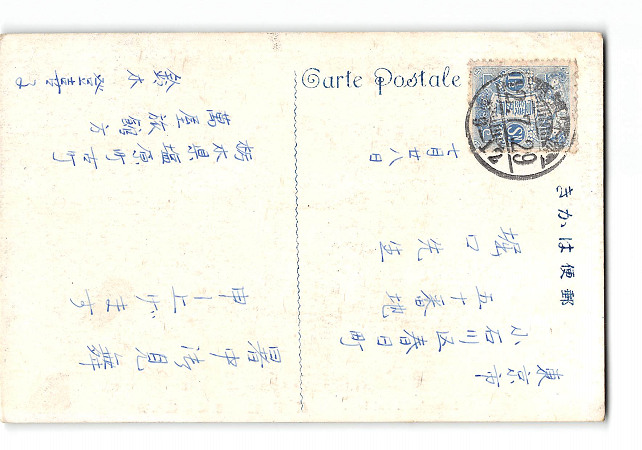 Carte Postale
きかは便郵
東京市
小石川区春日町
五十番地
堀口先生
七月廿八日
暑中御見舞
申し上げます
栃木県塩原町古町
萬屋旅館方
鈴木